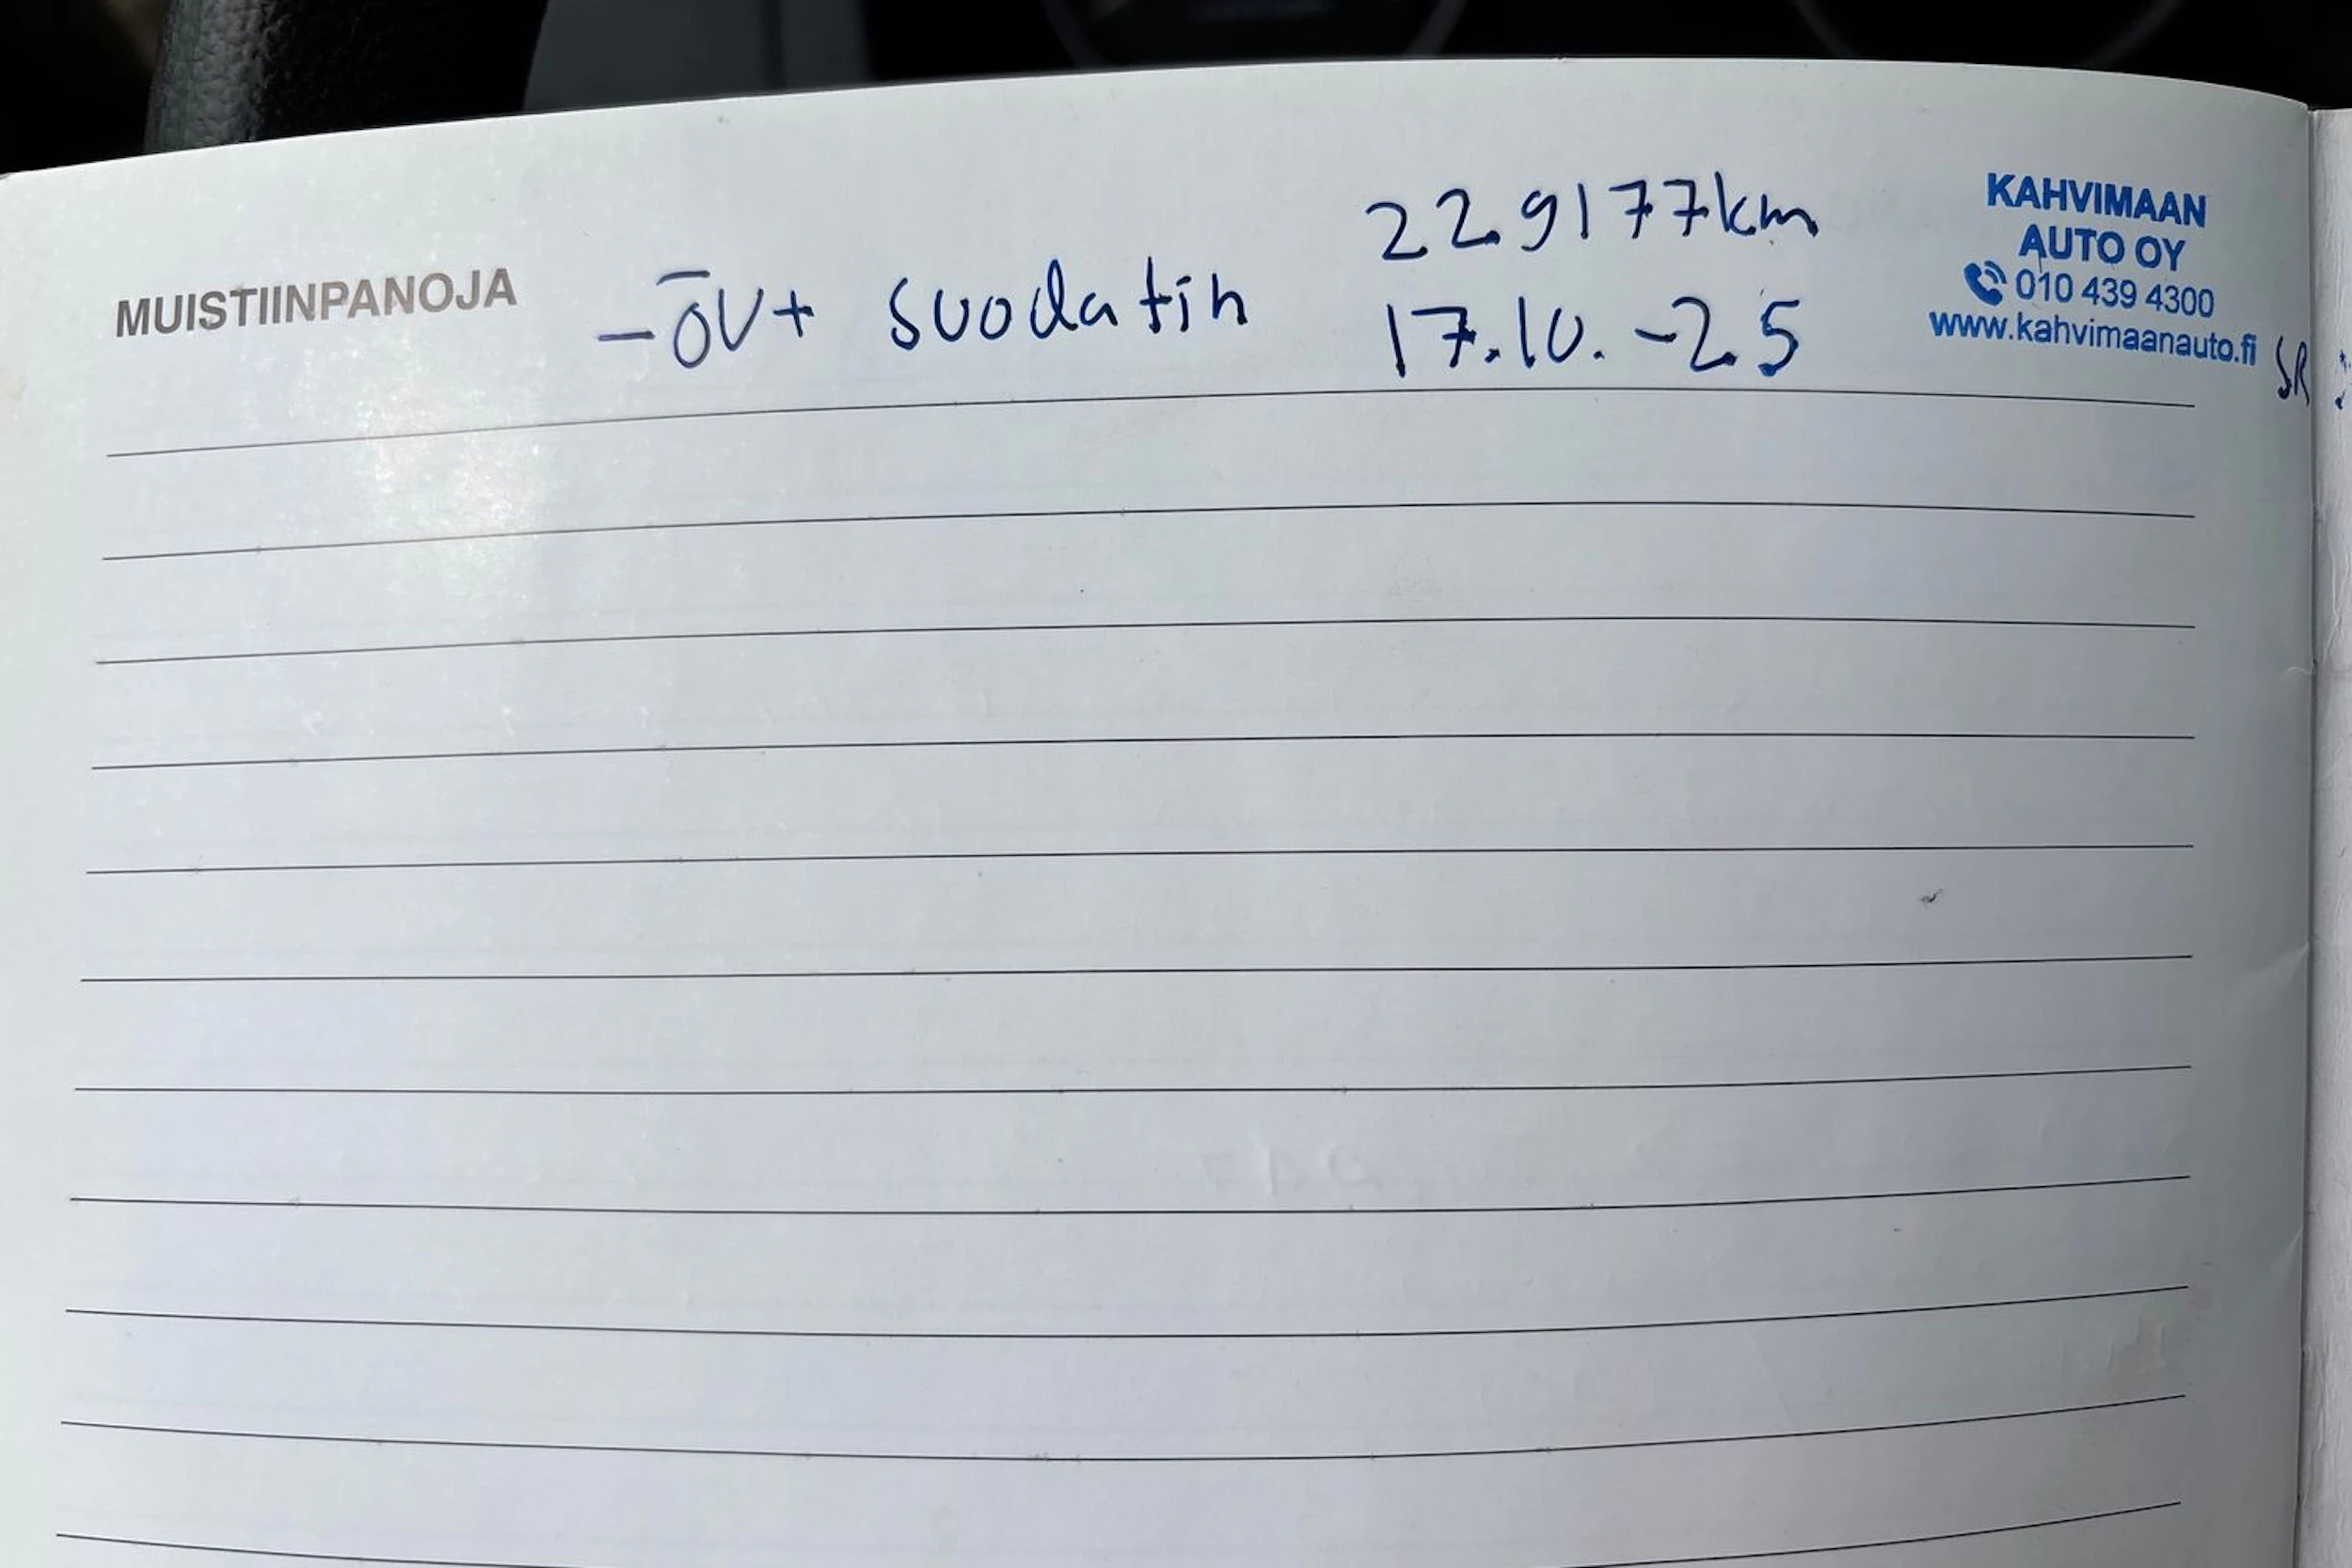 MUISTIINPANOJA
-ÖV+ suodatin
229177km
17.10.-25
KAHVIMAAN
AUTO OY
010 439 4300
www.kahvimaanauto.fi
SR